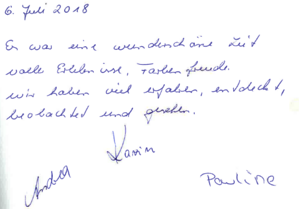 6. Juli 2018
Es war eine wunderschöne Zeit
volle Erlebnisse, Farbenfreude.
wir haben viel erfahren, entdeckt,
beobachtet und gesehen.
Karin
Pauline